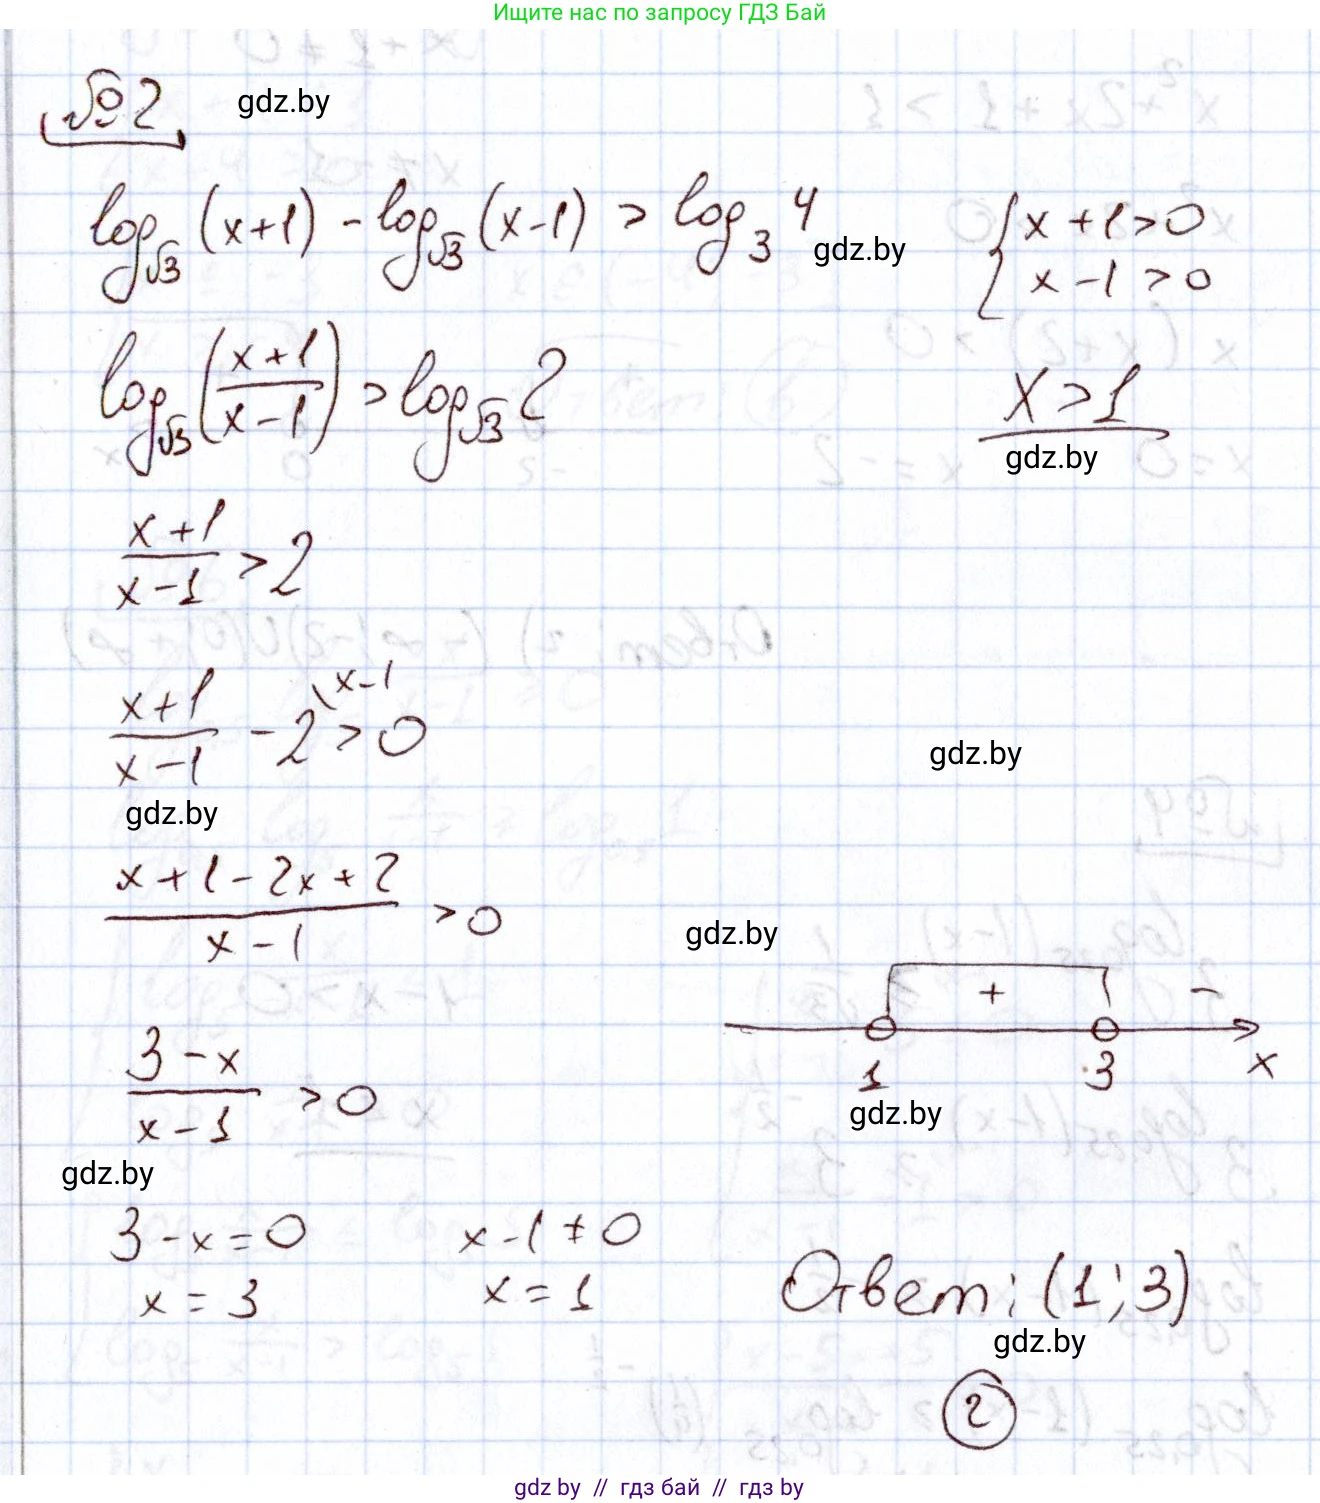 Ищите нас по запросу ГДЗ Бай
№2
gdz.by
log_√3 (x+1) - log_√3 (x-1) > log_3 4
gdz.by
{ x + 1 > 0
x - 1 > 0
log_√3 ((x+1)/(x-1)) > log_√3 2
x > 1
gdz.by
(x+1)/(x-1) > 2
(x+1)/(x-1) - 2 \x-1 > 0
gdz.by
gdz.by
(x+1-2x+2)/(x-1) > 0
gdz.by
+ -
1 3 x
gdz.by
(3-x)/(x-1) > 0
gdz.by
3-x=0 x-1≠0
x=3 x=1
Ответ: (1;3)
gdz.by
2
gdz by // гдз бай // gdz by